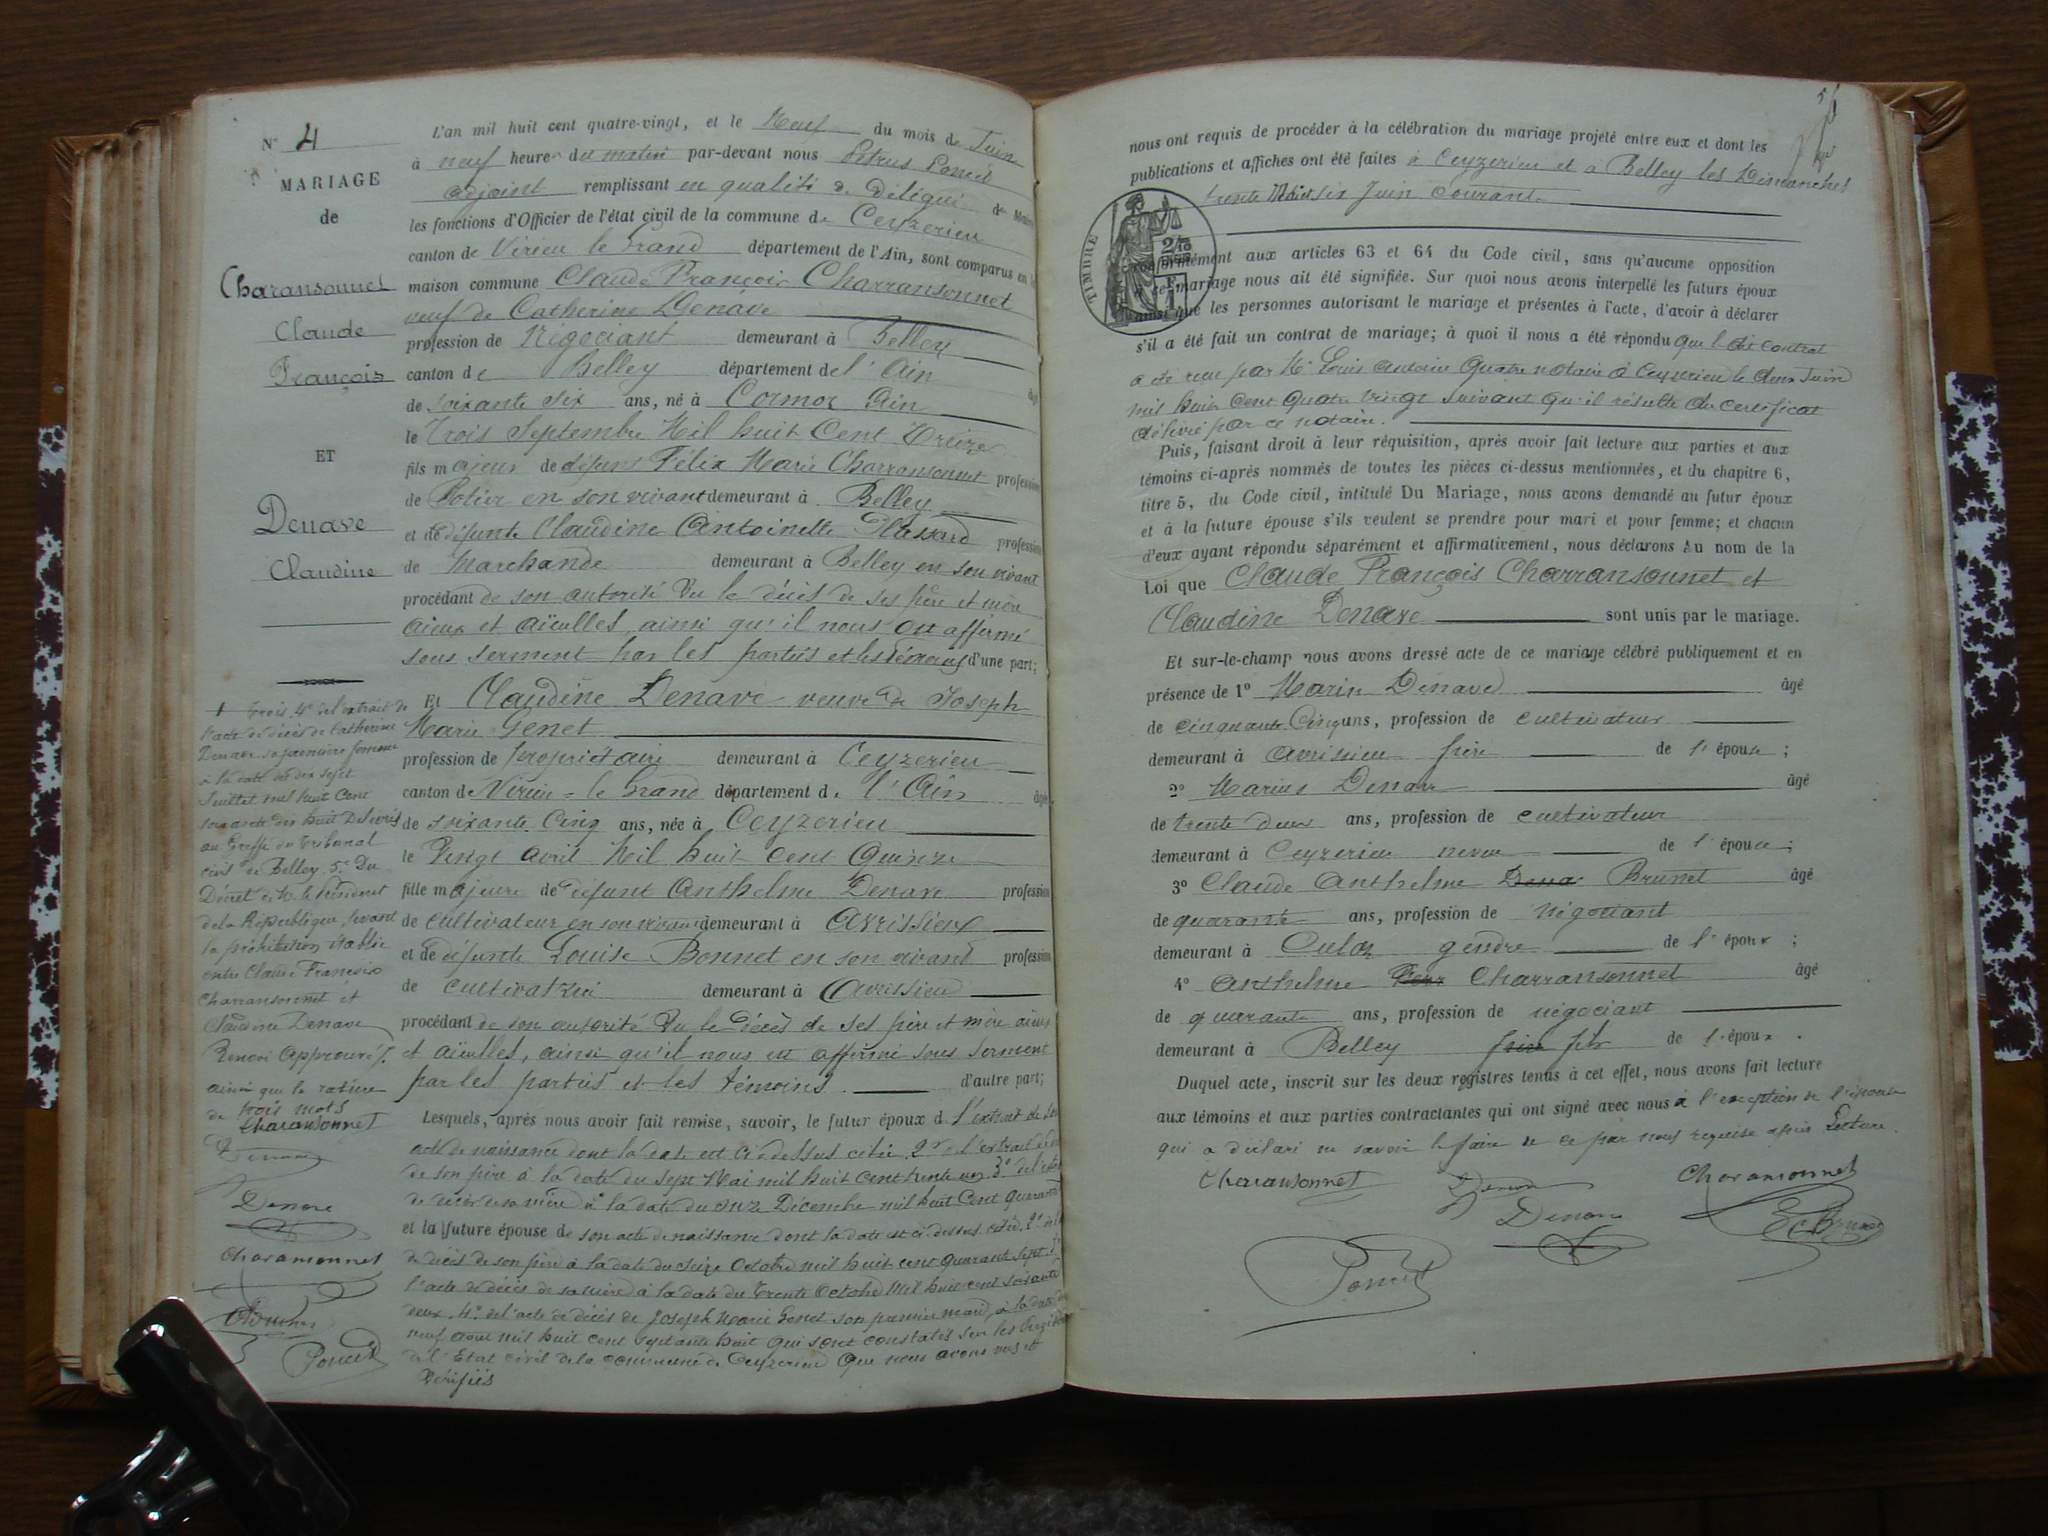 N° 4
MARIAGE
de
Charansonnet
Claude
François
ET
Denave
Claudine
L'an mil huit cent quatre-vingt, et le Neuf du mois de Juin
à neuf heures du matin par-devant nous Petrus Poncet
adjoint remplissant en qualité de délégué
les fonctions d'Officier de l'état civil de la commune de Ceyzerieu
canton de Virieu le Grand département de l'Ain, sont comparus en la
maison commune Claude François Charransonnet
veuf de Catherine Denave
profession de Négociant demeurant à Belley
canton de Belley département de l'Ain âgé
de soixante six ans, né à Cormoz Ain
le Trois Septembre Mil huit Cent Treize
fils majeur de défunt Félix Marie Charransonnet profession
de Potier en son vivant demeurant à Belley
et de défunte Claudine Antoinette profession
de Marchande demeurant à Belley en son vivant
procédant de son autorité Vu le décès de ses père et mère
aieux et aïeulles, ainsi qu'il nous ont affirmé
sous serment par les parties et les témoins d'une part;
Et Claudine Denave veuve de Joseph
Marie Genet
profession de propriétaire demeurant à Ceyzerieu
canton de Virieu-le Grand département de l'Ain âgée
de soixante Cinq ans, née à Ceyzerieu
le Vingt avril Mil huit Cent Quinze
fille majeure de défunt Anthelme Denave profession
de Cultivateur en son vivant demeurant à Avrissieu
et de défunte Louise Bonnet en son vivant profession
de cultivatrice demeurant à Avrissieu
procédant de son autorité Vu le Décès de ses père et mère aieux
et aïeulles, ainsi qu'il nous ont affirmé sous serment
par les parties et les témoins d'autre part;
Lesquels, après nous avoir fait remise, savoir, le futur époux d l'extrait de son
acte de naissance dont la date est ci-dessus citée 2° de l'extrait de
de son père à la date du sept Mai mil huit cent trente un 3° de l'extrait
de décès de sa mère à la date du onze Décembre mil huit Cent quarante
et la future épouse de son acte de naissance dont la date est ci-dessus citée. 2°
de décès de son père à la date du seize Octobre mil huit cent quarante sept 3°
l'acte de décès de sa mère à la date du trente Octobre Mil huit cent soixante
deux. 4° de l'acte de décès de Joseph Marie Genet son premier mari, à la date du
neuf août mil huit cent septante huit qui sont constatés sur les Registres
de l'Etat civil de la commune de Ceyzerieu que nous avons vus et
Vérifiés
1 trois 4° de l'extrait de
l'acte de décès de Catherine
Denave sa première femme
à la date du dix sept
Juillet mil huit Cent
soixante dix huit Délivrés
au Greffe du Tribunal
civil de Belley 5° Du
Décret de M. le Président
de la République levant
la prohibition établie
entre Claude François
Charransonnet et
Claudine Denave
Renvoi Approuvé
ainsi que la rature
de trois mots
Charansonnet
Denave
Denave
Charansonnet
Poncet
nous ont requis de procéder à la célébration du mariage projeté entre eux et dont les
publications et affiches ont été faites à Ceyzerieu et à Belley les Dimanches
trente Mai et six Juin Courant
TIMBRE
conformément aux articles 63 et 64 du Code civil, sans qu'aucune opposition
à ce mariage nous ait été signifiée. Sur quoi nous avons interpellé les futurs époux
ainsi que les personnes autorisant le mariage et présentes à l'acte, d'avoir à déclarer
s'il a été fait un contrat de mariage; à quoi il nous a été répondu que l dit contrat
a été reçu par Me Louis Antoine Quatre notaire à Ceyzerieu le deux Juin
mil huit Cent Quatre Vingt suivant qu'il résulte du certificat
délivré par ce notaire.
Puis, faisant droit à leur réquisition, après avoir fait lecture aux parties et aux
témoins ci-après nommés de toutes les pièces ci-dessus mentionnées, et du chapitre 6,
titre 5, du Code civil, intitulé Du Mariage, nous avons demandé au futur époux
et à la future épouse s'ils veulent se prendre pour mari et pour femme; et chacun
d'eux ayant répondu séparément et affirmativement, nous déclarons au nom de la
Loi que Claude François Charransonnet et
Claudine Denave sont unis par le mariage.
Et sur-le-champ nous avons dressé acte de ce mariage célébré publiquement et en
présence de 1° Marin Denave âgé
de cinquante Cinq ans, profession de cultivateur
demeurant à Avrissieu frère de l'épouse ;
2° Marius Denave âgé
de trente deux ans, profession de cultivateur
demeurant à Ceyzerieu neveu de l'épouse ;
3° Claude Anthelme Brunet âgé
de quarante ans, profession de négociant
demeurant à Culoz gendre de l'époux ;
4° Anthelme Charransonnet âgé
de quarante ans, profession de négociant
demeurant à Belley frère fils de l'époux .
Duquel acte, inscrit sur les deux registres tenus à cet effet, nous avons fait lecture
aux témoins et aux parties contractantes qui ont signé avec nous à l'exception de l'épouse
qui a déclaré ne savoir le faire de ce par nous requise après Lecture.
Charansonnet Denave Charansonnet
Denave Brunet
Poncet